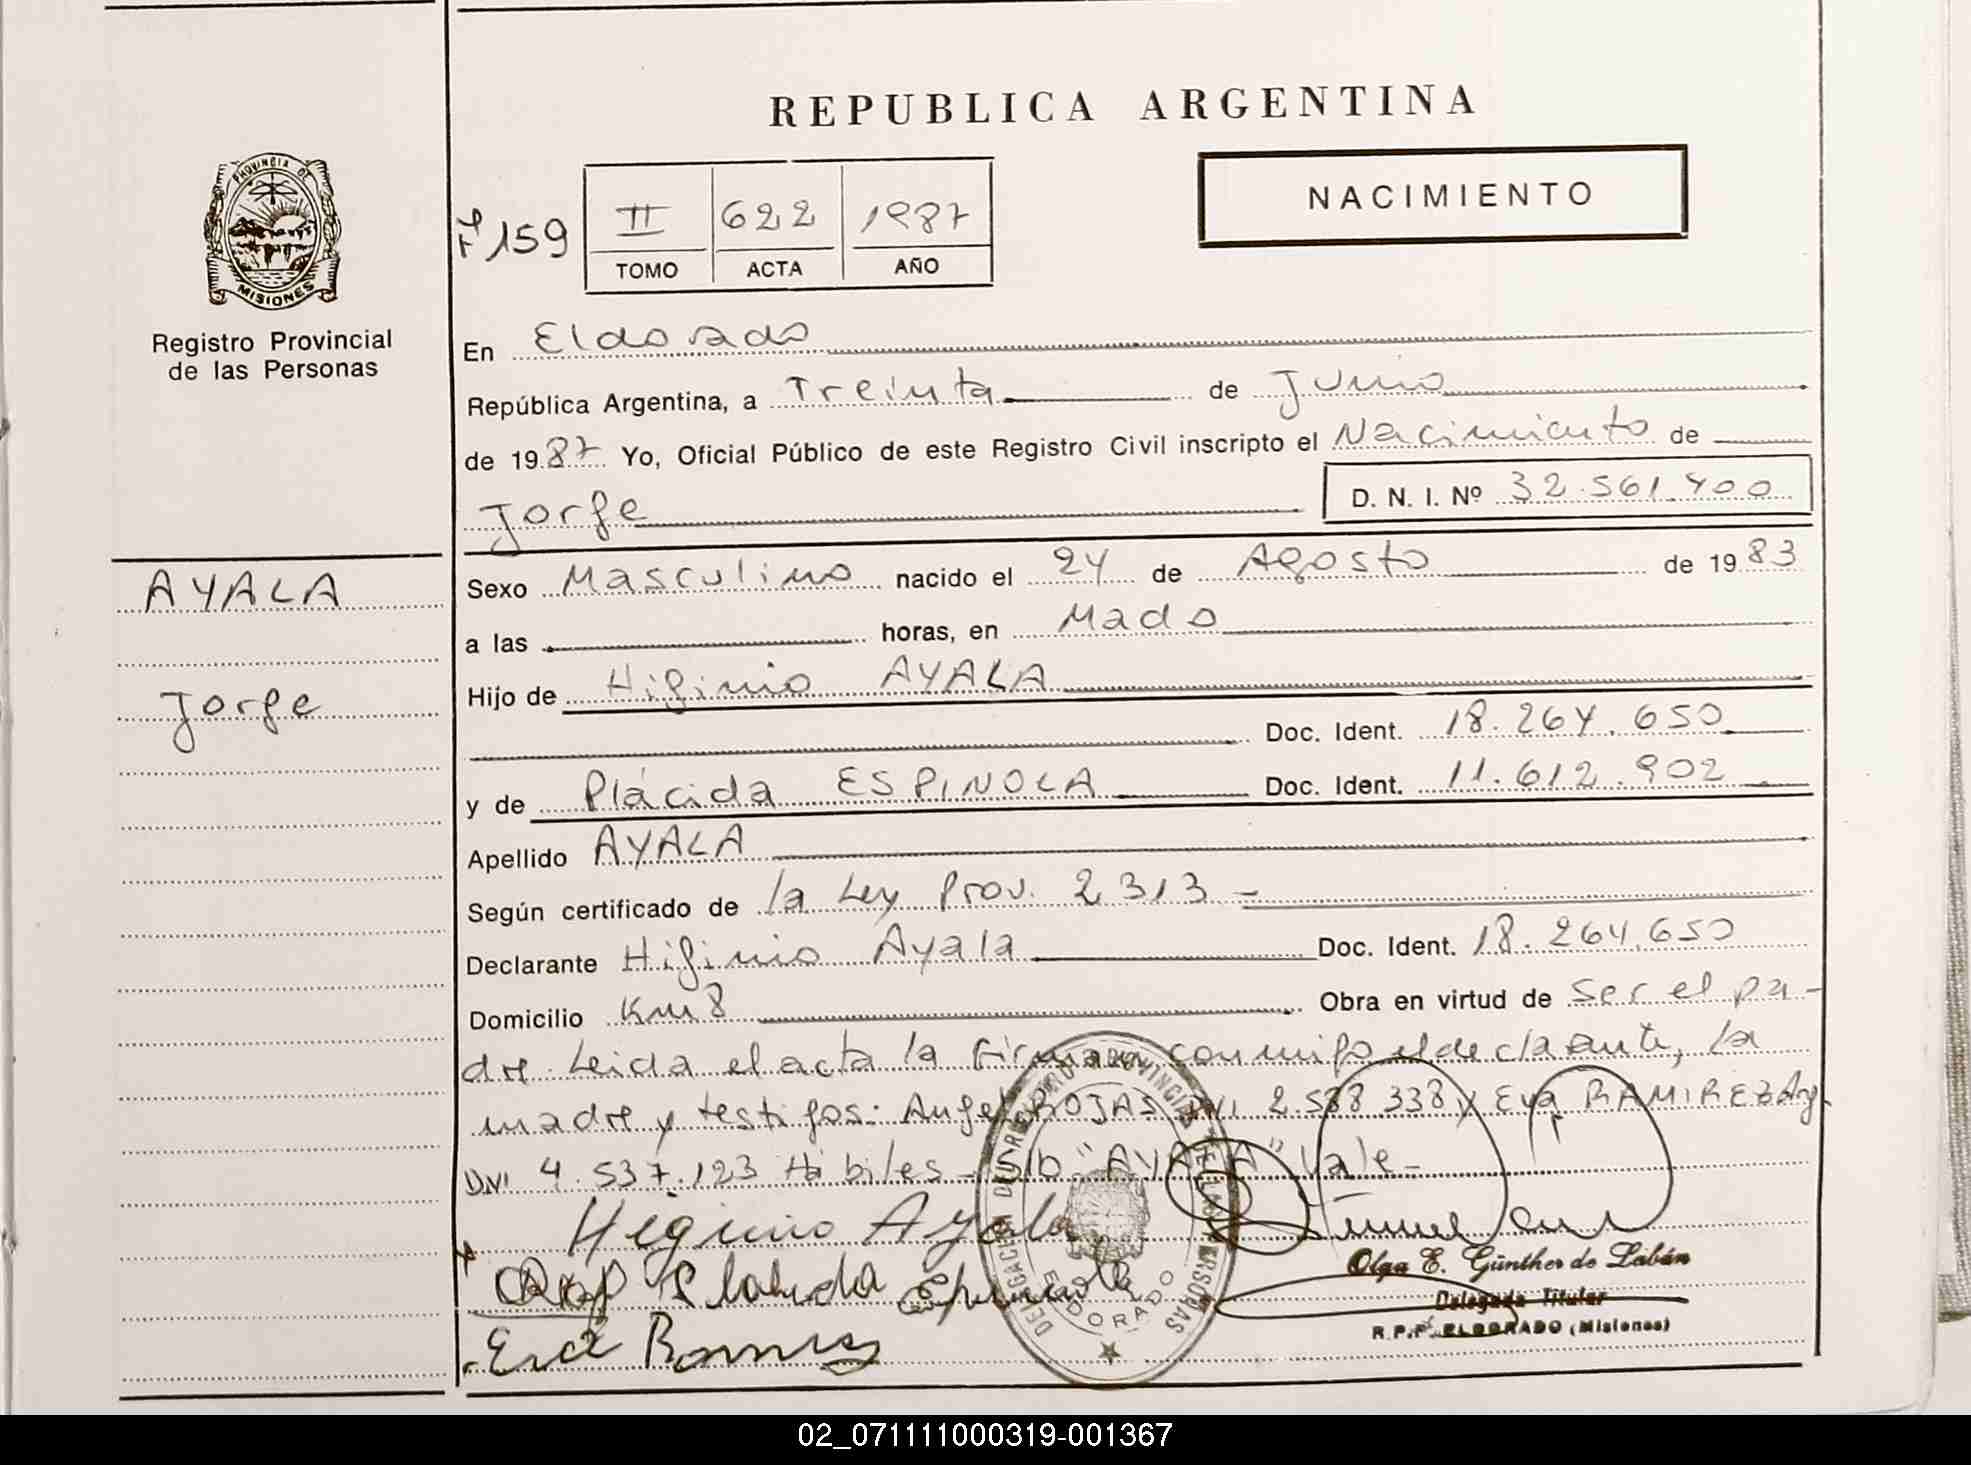 REPUBLICA ARGENTINA
PROVINCIA DE
MISIONES
Registro Provincial
de las Personas
Fº 159
II 622 1987
TOMO ACTA AÑO
NACIMIENTO
En Eldorado
República Argentina, a Treinta de Junio
de 1987 Yo, Oficial Público de este Registro Civil inscripto el Nacimiento de
Jorge
D. N. I. Nº 32.561.400
AYALA
Jorge
Sexo Masculino nacido el 24 de Agosto de 1983
a las horas, en Mado
Hijo de Higinio AYALA
Doc. Ident. 18.264.650
y de Plácida ESPINOLA Doc. Ident. 11.612.902
Apellido AYALA
Según certificado de la Ley Prov. 2313 -
Declarante Higinio Ayala Doc. Ident. 18.264.650
Domicilio Km 8 Obra en virtud de ser el pa-
dre. Leida el acta la firman conmigo el declaante, la
madre y testigos: Angel ROJAS DNI 2.588.338 y Eva RAMIREZ Arg.
DNI 4.537.123 Hábiles - S/b "AYALA" Vale -
Higinio Ayala
Placida Epinola
Eva
DELEGACION DEL REGISTRO PROVINCIAL DE LAS PERSONAS
ELDORADO
Olga E. Günther de Labán
Delegada Titular
R.P.P. ELDORADO (Misiones)
02_071111000319-001367